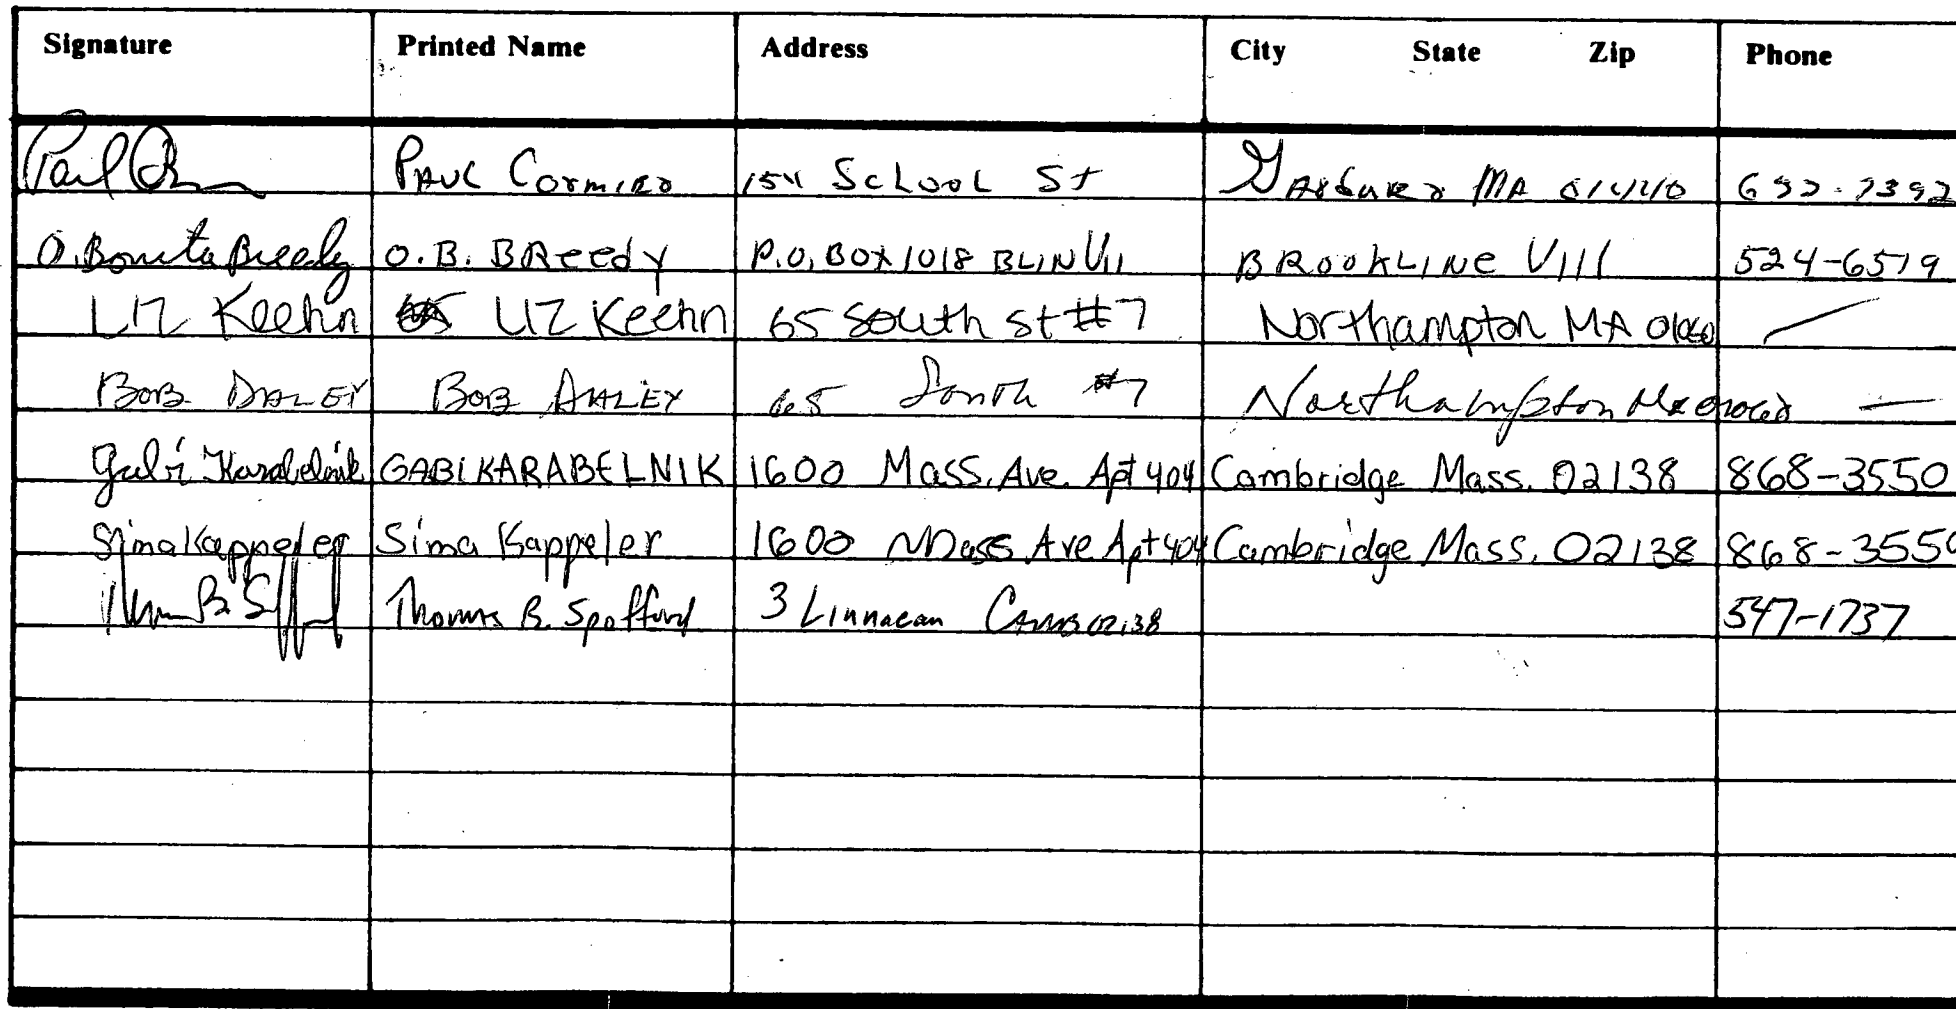 Signature Printed Name Address City State Zip Phone
Paul PAUL Cormier 154 SCHOOL St MA 01440
O. Bonita Breedy O.B. BReedy P.O. BOX 1018 BLIN Vil BROOKLINE Vill 524-6519
LIZ Keehn LIZ Keehn 65 South St #7 Northampton MA 01060 —
BOB DALEY BOB DALEY 65 South #7 Northampton Ma 01060 —
Gabi Karabelnik GABI KARABELNIK 1600 Mass. Ave. Apt 404 Cambridge Mass. 02138 868-3550
Sima Kappeler Sima Kappeler 1600 Mass Ave Apt 404 Cambridge Mass. 02138 868-3550
Thomas B. Spofford 3 Linnaean CAMB 02138 547-1737